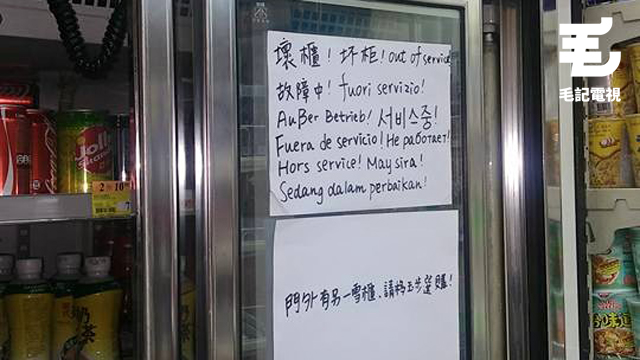 毛
毛記電視
壞櫃! 坏柜! out of service
故障中! fuori servizio!
Außer Betrieb! 서비스중!
Fuera de servicio! Не работает!
Hors service! May sira!
Sedang dalam perbaikan!
門外有另一雪櫃、請移玉步選購!
Jolly
2
10
7
奶茶